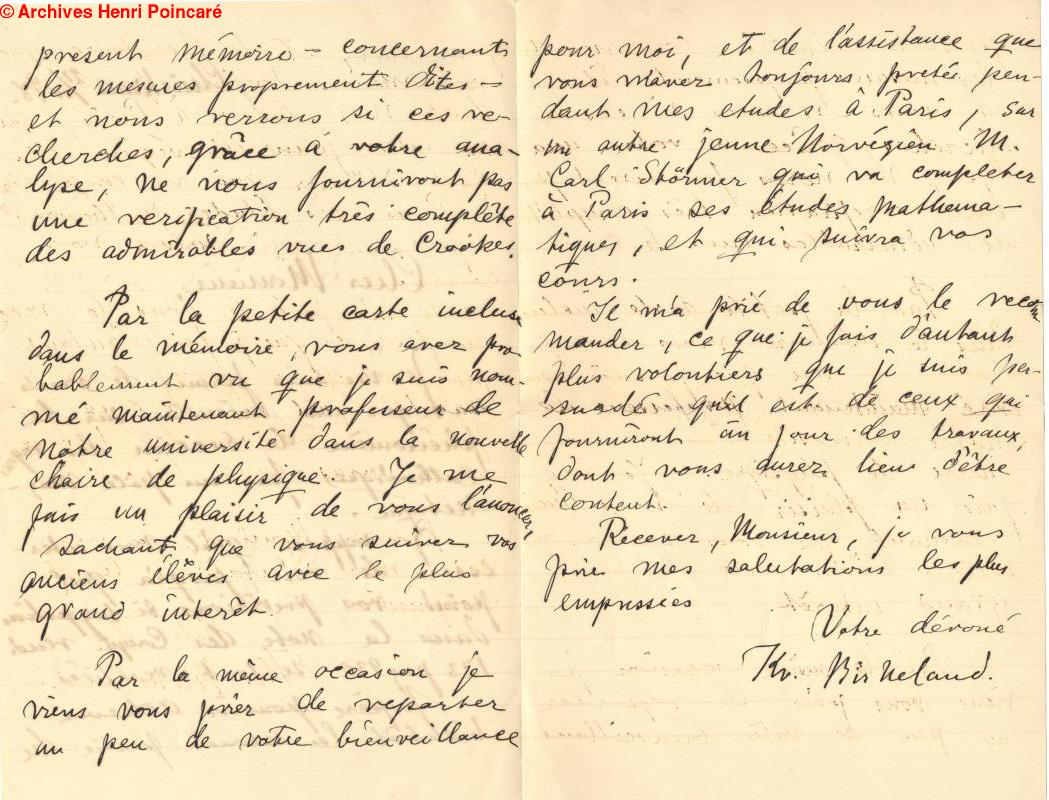 © Archives Henri Poincaré
present mémoire – concernant
les mesures proprement dites –
et nous verrons si ces re-
cherches, grâce à votre ana-
lyse, ne nous fourniront pas
une verification très complête
des admirables vues de Crookes.
Par la petite carte incluse
dans le mémoire, vous avez pro
bablement vu que je suis nom-
mé maintenant professeur de
notre université dans la nouvelle
chaire de physique. Je me
fais un plaisir de vous l'anoncer,
sachant que vous suivez vos
anciens élêves avec le plus
grand interêt.
Par la même occasion je
viens vous prier de reporter
un peu de votre bienveillance
pour moi, et de l'assistance que
vous m'avez toujours preté pen-
dant mes etudes à Paris, sur
un autre jeune Norvégien M.
Carl Störmer qui va completer
à Paris ses études mathema-
tiques, et qui suivra vos
cours.
Il m'a prié de vous le recom
mander, ce que je fais d'autant
plus volontiers que je suis per-
suadé qu'il est de ceux qui
fourniront un jour des travaux,
dont vous aurez lieu d'être
content.
Recevez, Monsieur, je vous
prie mes salutations les plus
empressées
Votre dévoué
Kr. Birkeland.